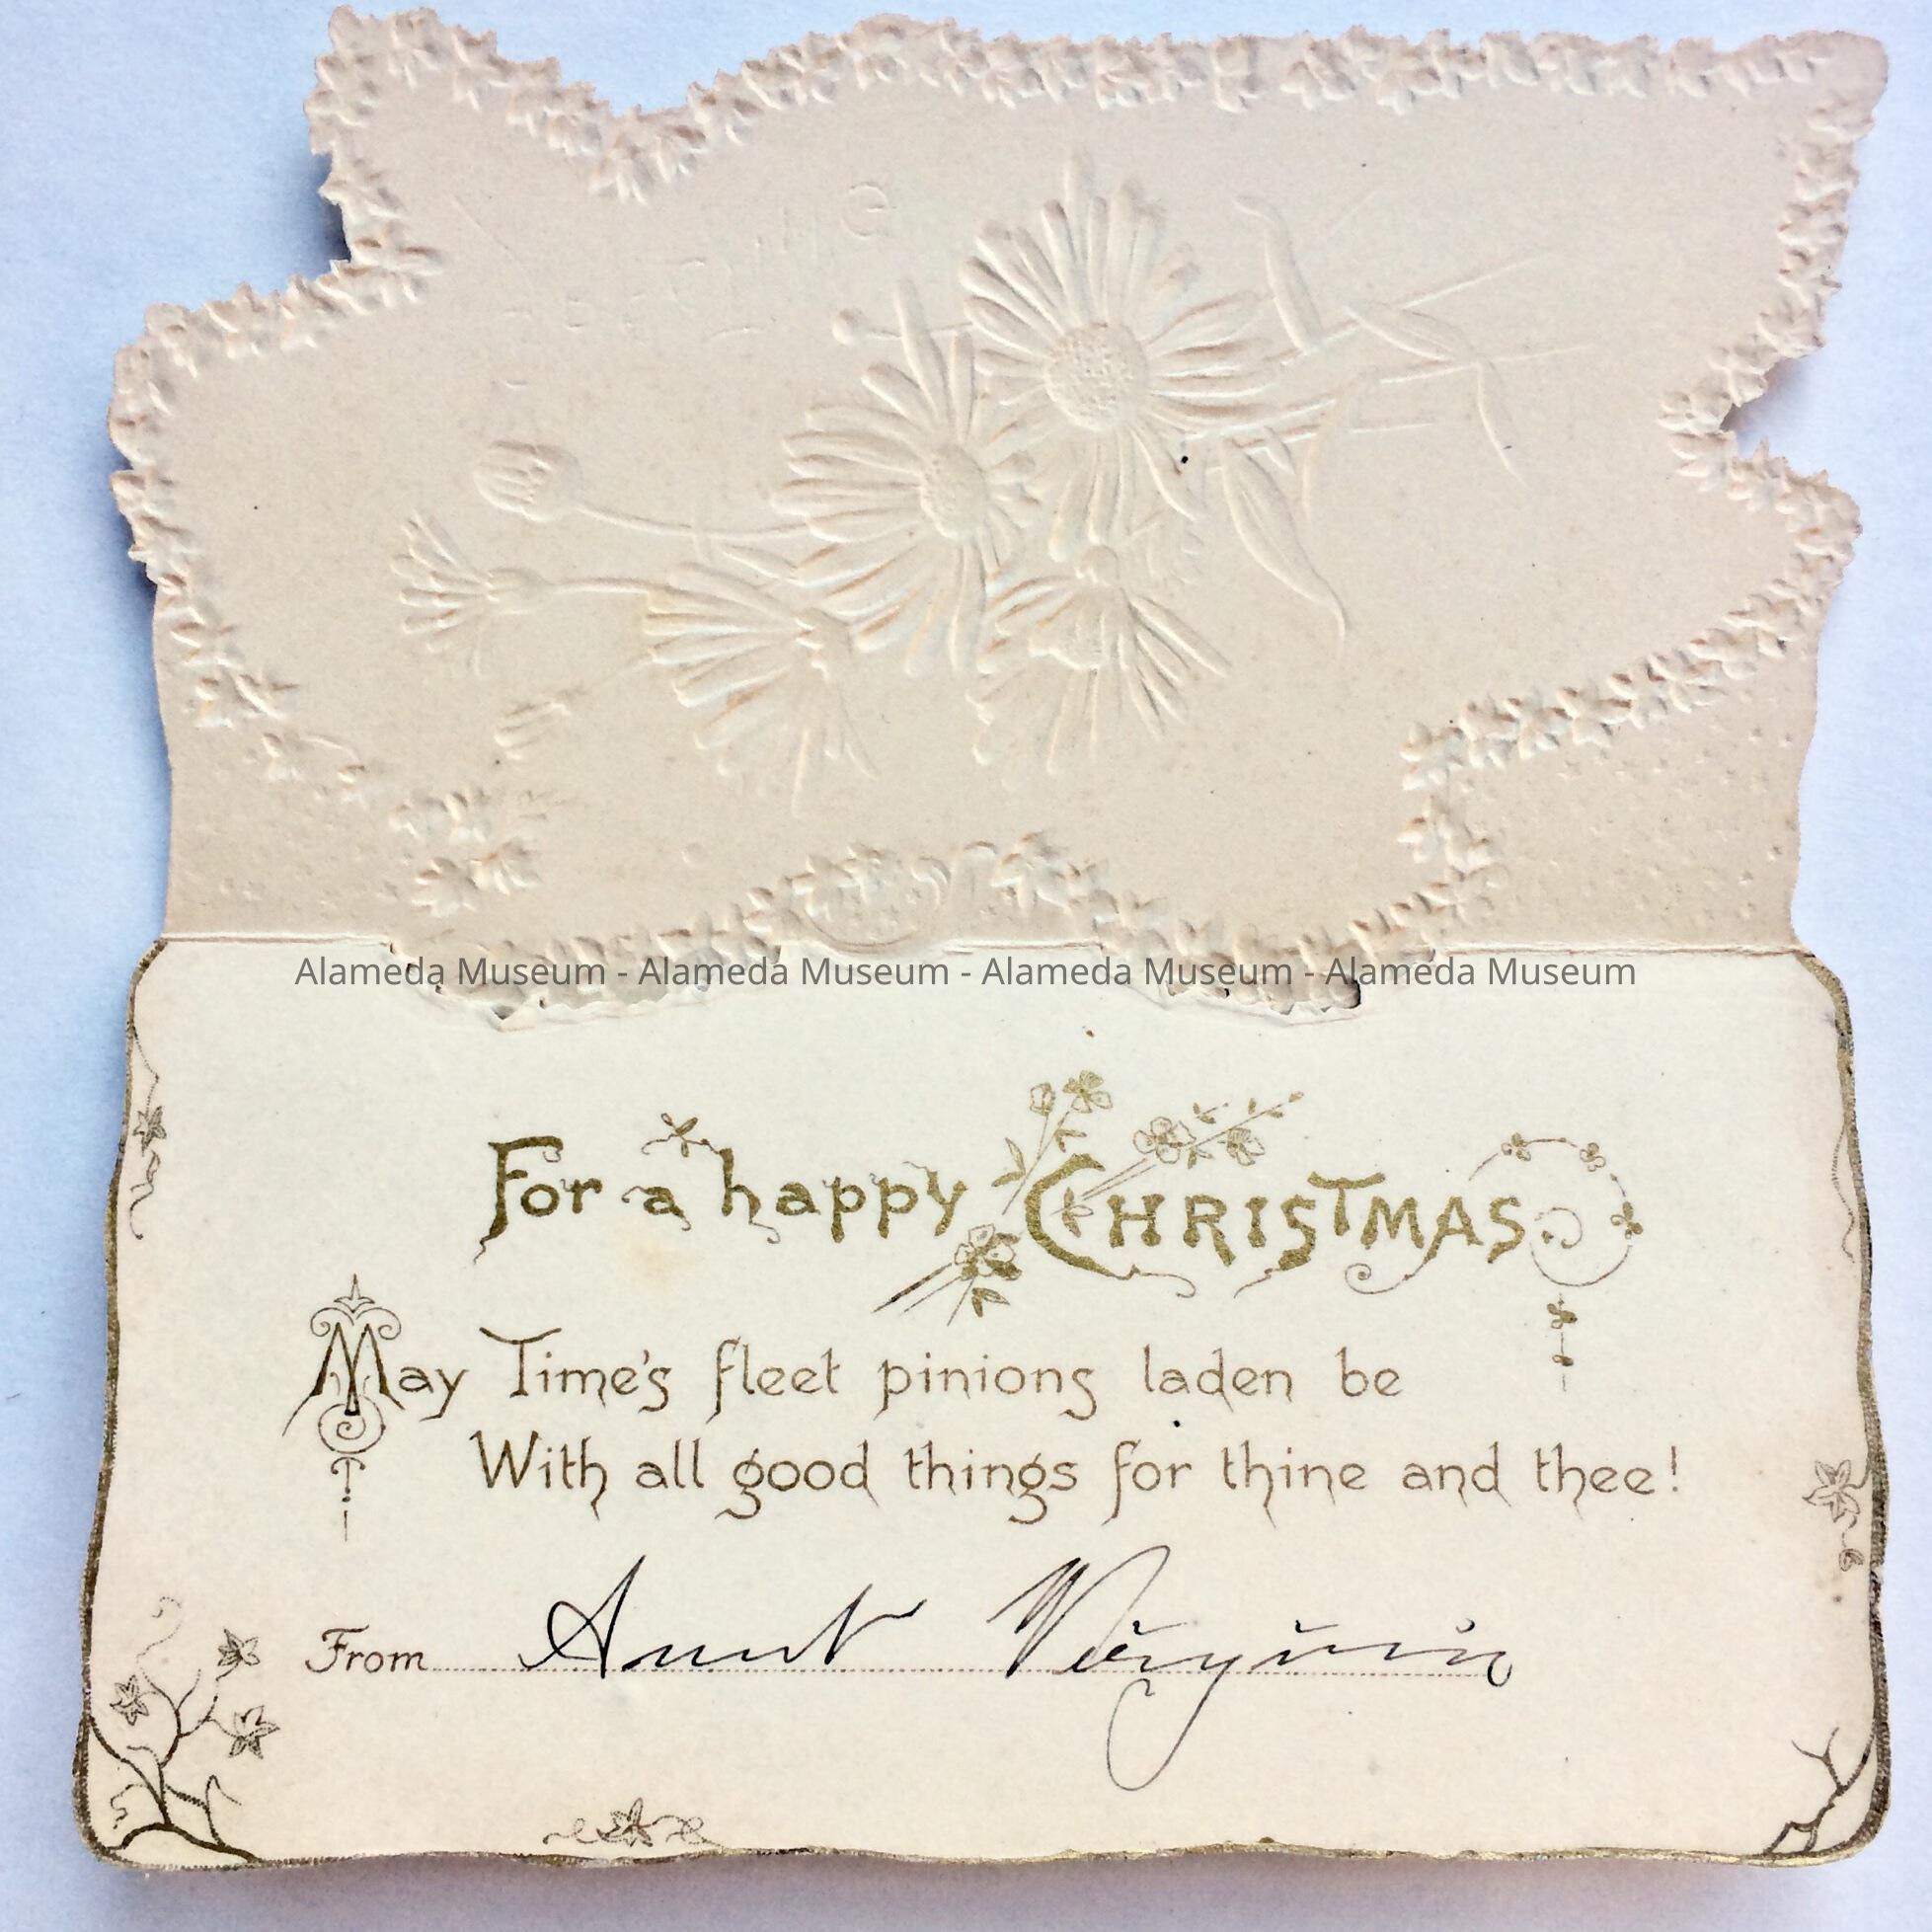 Alameda Museum - Alameda Museum - Alameda Museum - Alameda Museum
For a happy CHRISTMAS
May Time's fleet pinions laden be
With all good things for thine and thee!
From Aunt Virginia